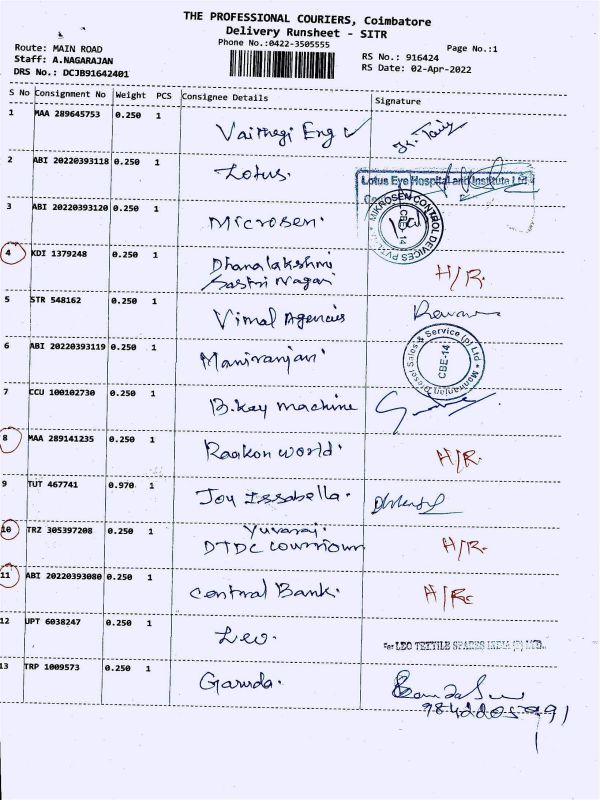 THE PROFESSIONAL COURIERS, Coimbatore
Delivery Runsheet - SITR
Phone No.:0422-3505555
Page No.:1
Route: MAIN ROAD
Staff: A.NAGARAJAN
DRS No.: DCJB91642401
RS No.: 916424
RS Date: 02-Apr-2022
S No Consignment No Weight PCS Consignee Details Signature
1 MAA 289645753 0.250 1 Vaithegi Eng
2 ABI 20220393118 0.250 1 Lotus.
Lotus Eye Hospital and Institute Ltd
3 ABI 20220393120 0.250 1 Microsen.
MIKROSEN CONTROL DEVICES PVT LTD * CBE-14
4 KDI 1379248 0.250 1 Dhanalakshmi H/R.
Sastri Nagar
5 STR 548162 0.250 1 Vimal Agencies
6 ABI 20220393119 0.250 1 Maniranjan
Maniranjan Diesel Sales & Service (p) Ltd * CBE-14
7 CCU 100102730 0.250 1 B.Kay machine
8 MAA 289141235 0.250 1 Raakon world. H/R.
9 TUT 467741 0.970 1 Joy Issabella.
10 TRZ 305397208 0.250 1 Yuvaraj. H/R.
DTDC
11 ABI 20220393080 0.250 1 Central Bank. H/R
12 UPT 6038247 0.250 1 Leo.
For LEO TEXTILE SPARES INDIA (P) LTD.
13 TRP 1009573 0.250 1 Garuda.